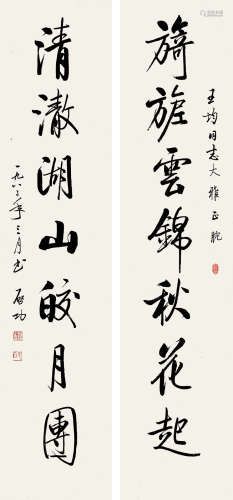 旖旎雲錦秋花起
王均同志大雅正腕
清澈湖山皎月團
一九八三年三月書 啟功